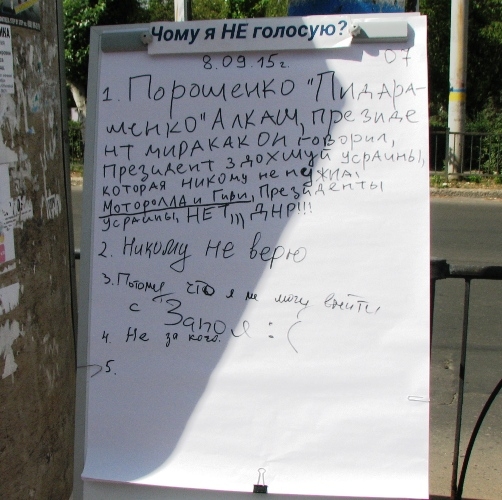 Чому я НЕ голосую?
8.09.15г.
07
1. Порошенко "Пидара-
шенко" Алкаш, президе
нт мира как он говорил,
Президент здохшуй Украины,
которая никому не нужна!
Моторолла и Гиви, Президенты
Украины, НЕТ,,, ДНР!!!
2. Никому не верю
3. Потому что я не могу выйти
с Запоя :(
4. Не за кого.
5.